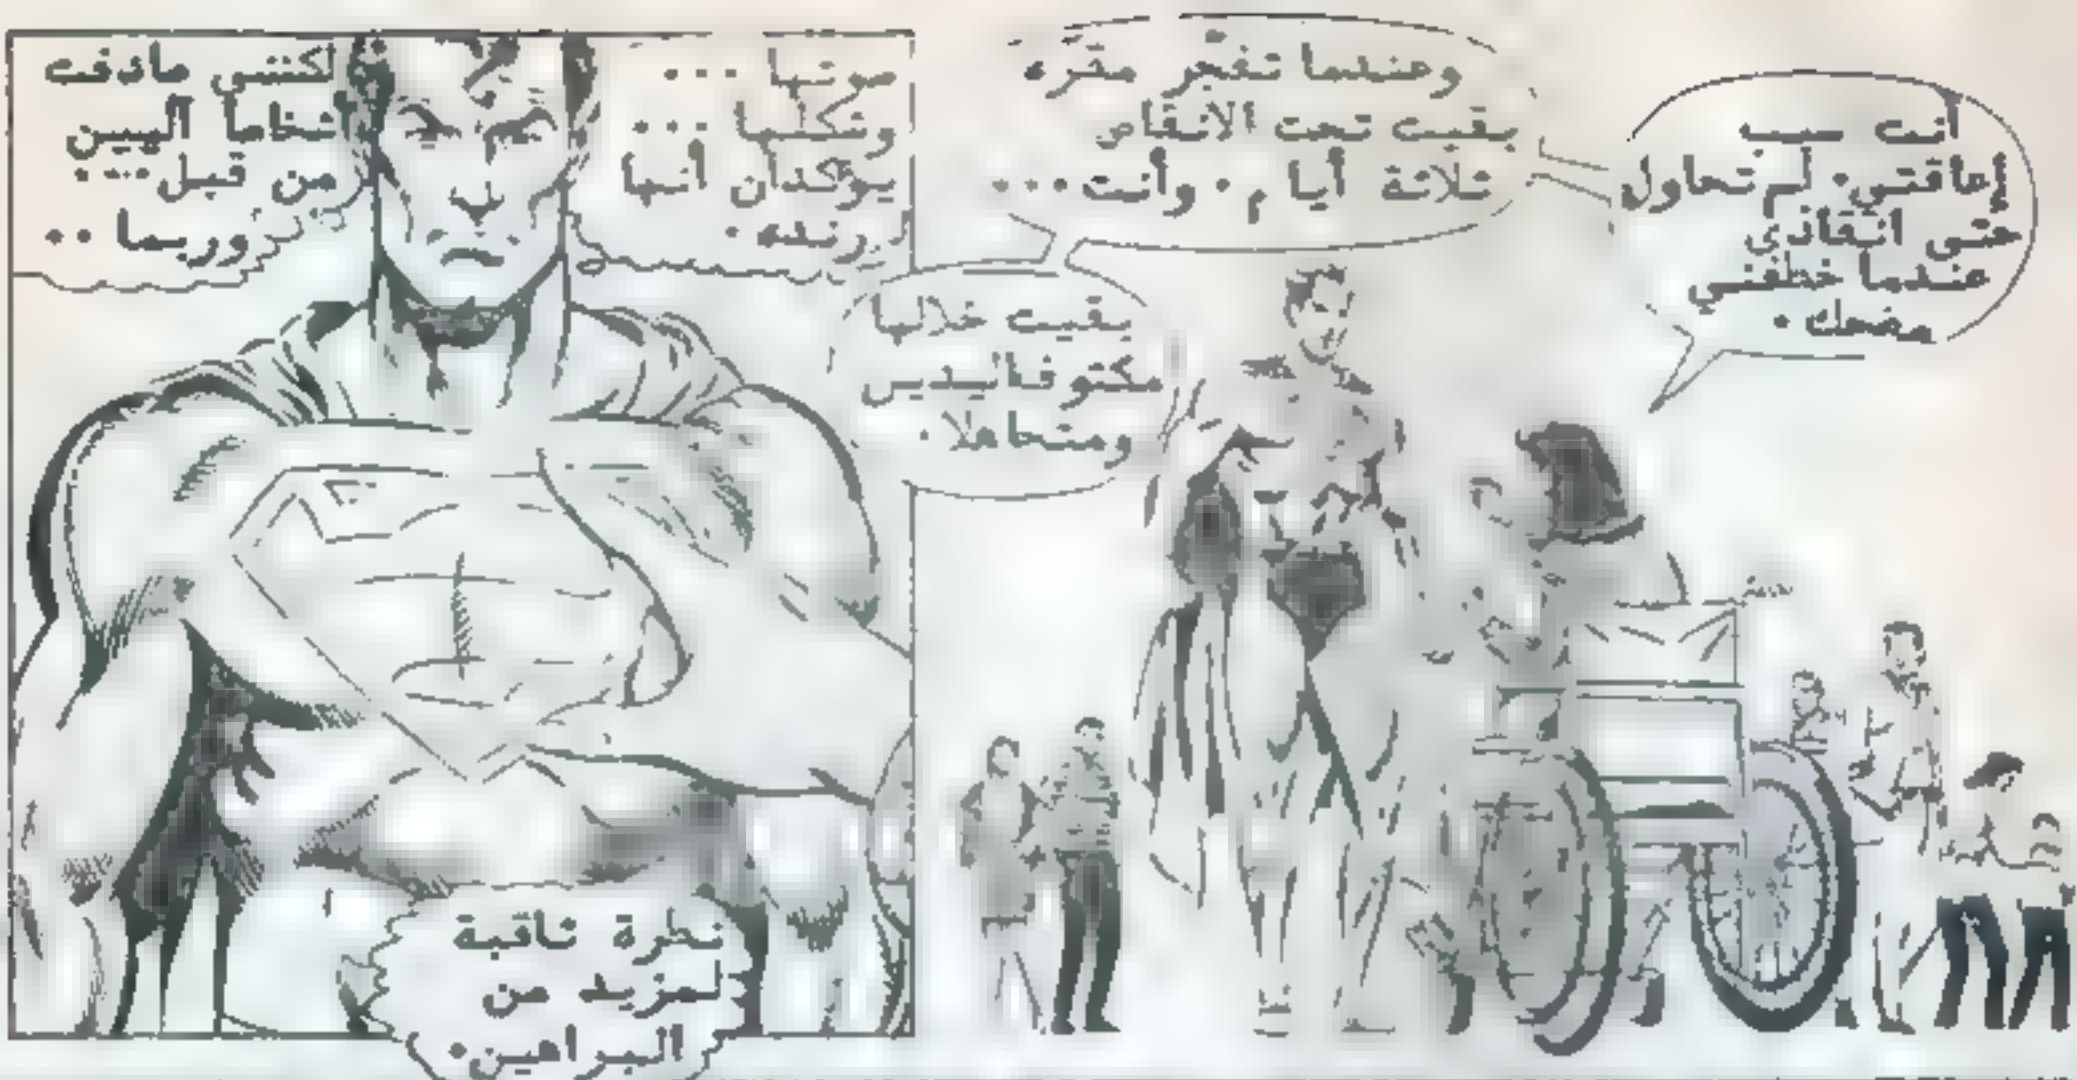 أنت سبب
إعاقتي. لم تحاول
حتى انقاذي
عندما خطفني
مضحك.
وعندما تفجّر مقرّه
بقيت تحت الانقاض
ثلاثة أيام. وأنت...
بقيت خلالها
مكتوفاليدين
ومتجاهلا.
صوتها ...
وشكلها ...
يؤكدان أنها
رنده.
لكنني صادفت
أشخاصاً آليين
من قبل...
وربما ..
نظرة ثاقبة
لمزيد من
البراهين.